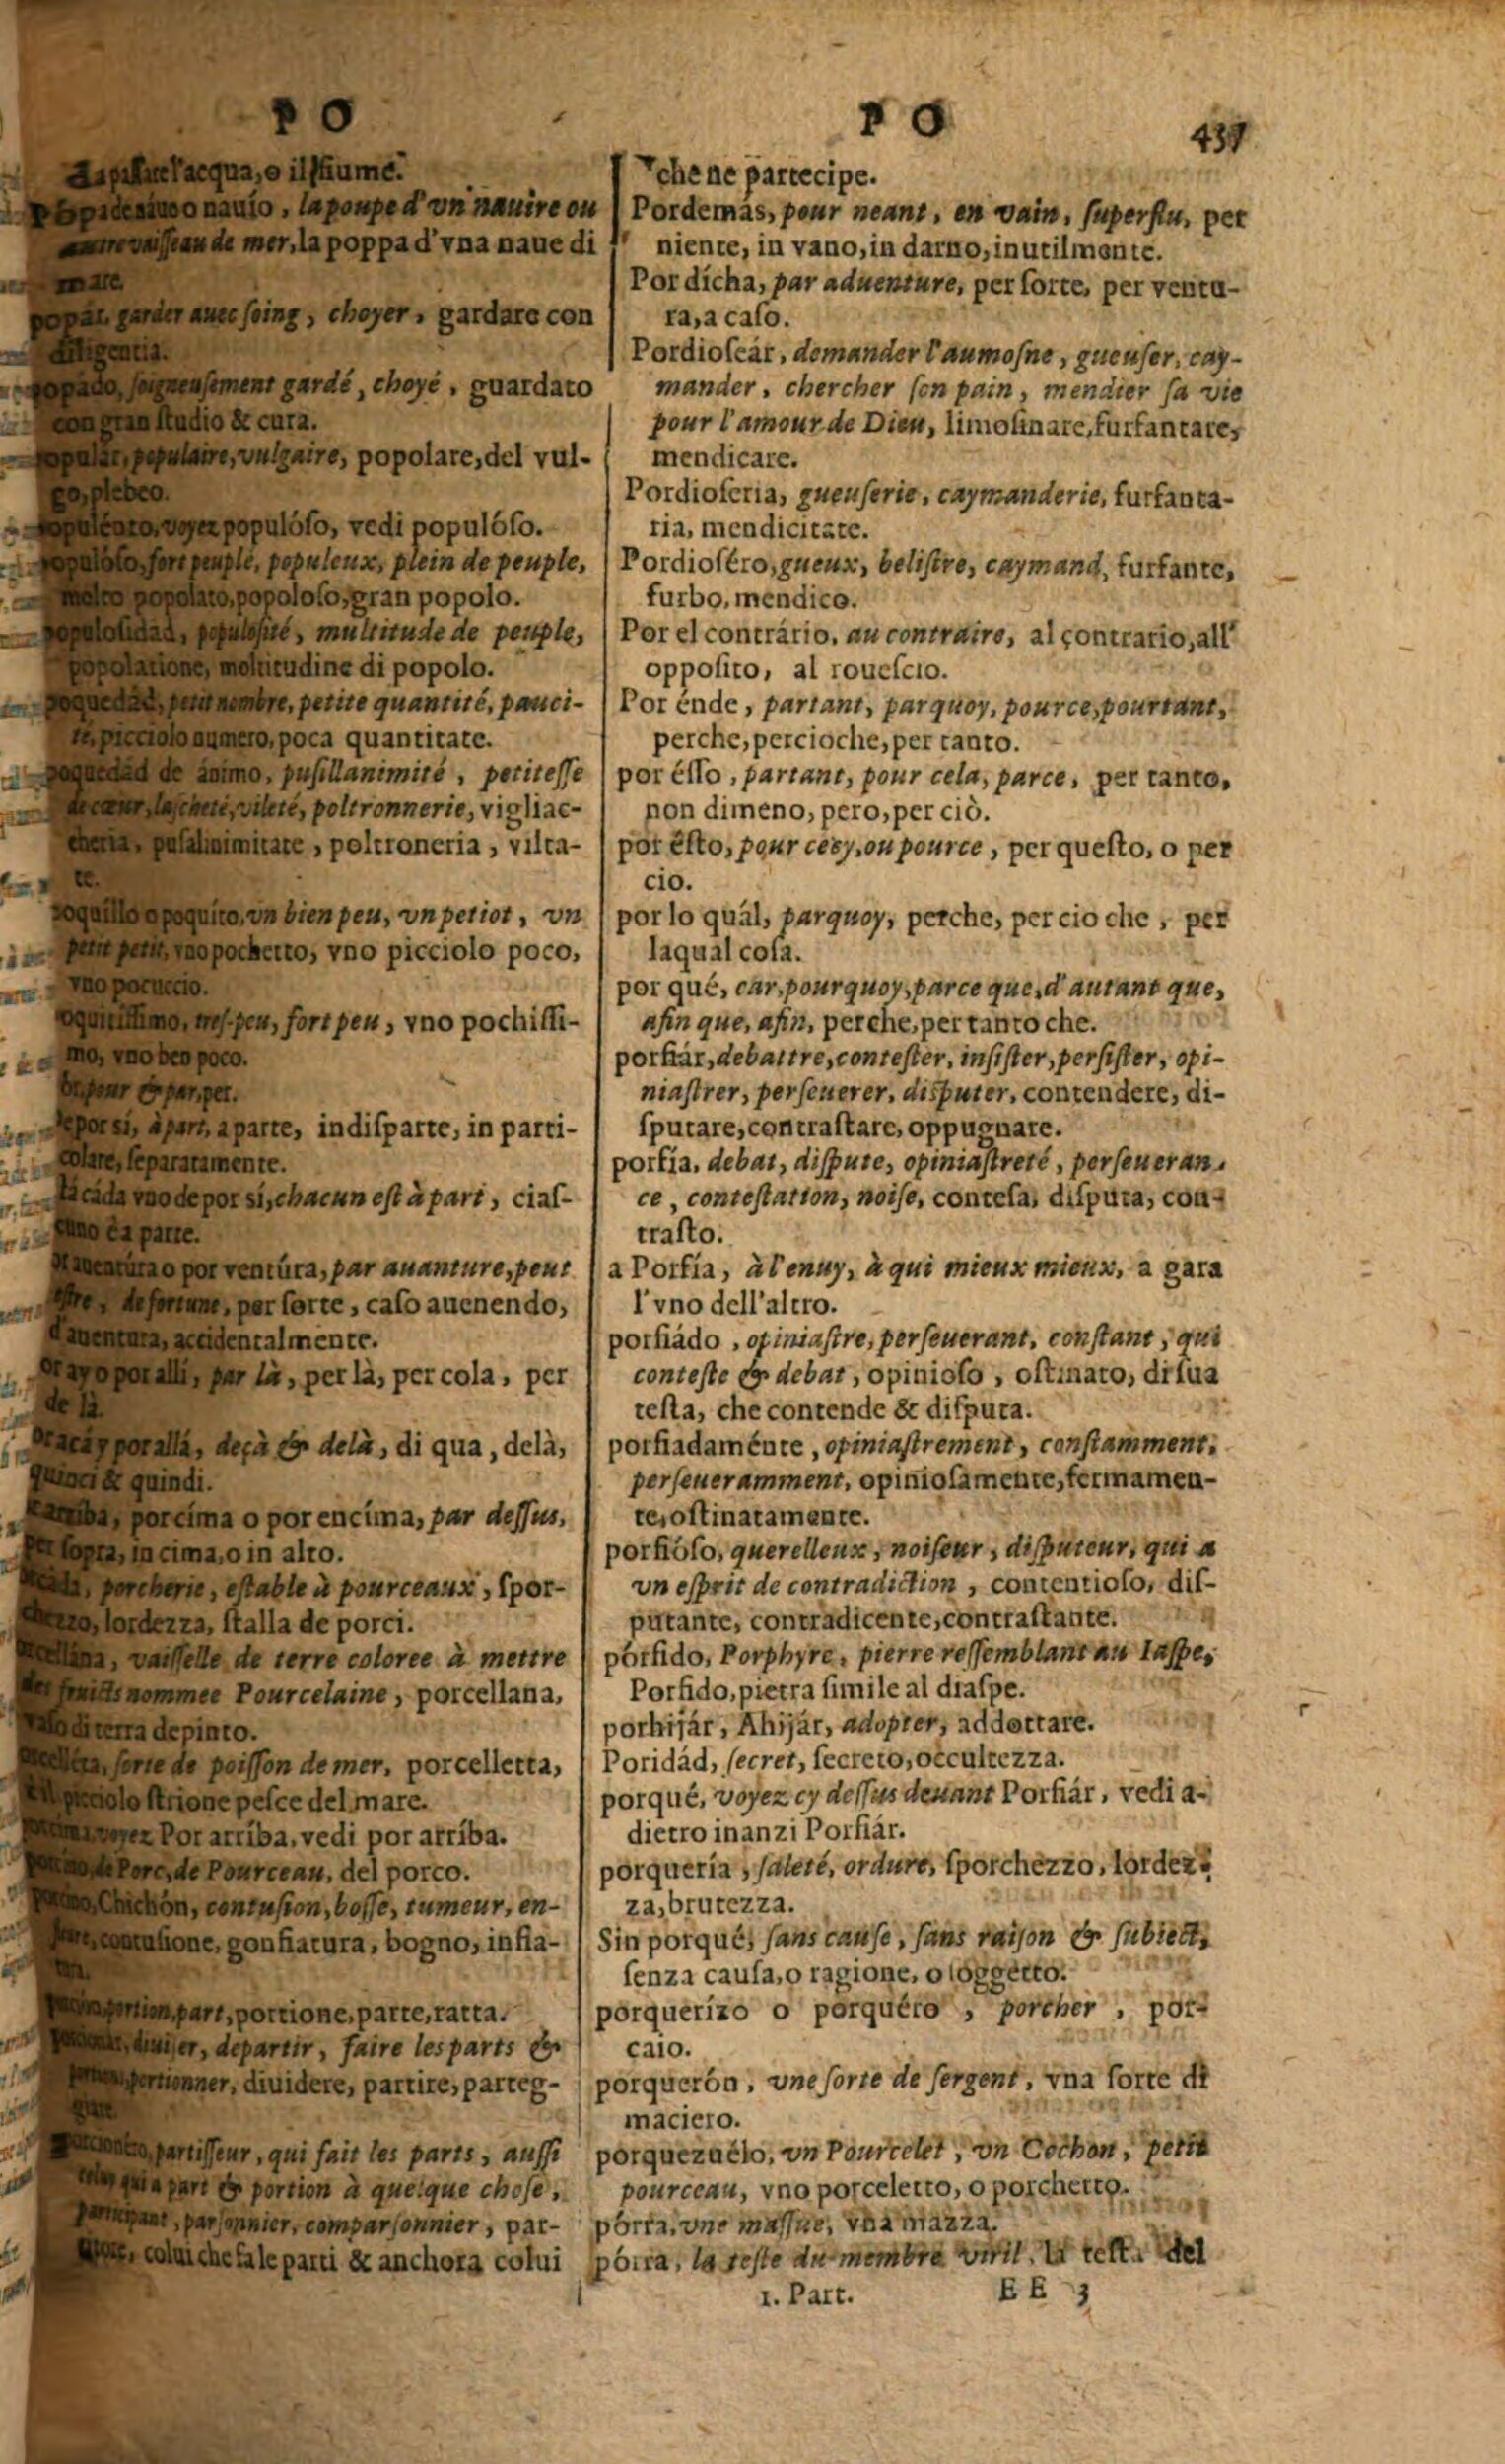 P O
l'acqua, o il fiume.
o nauío, la poupe d'vn nauire ou
de mer, la poppa d'vna naue di
mare.
popár, garder auec ſoing, choyer, gardare con
diligentia.
popádo, ſoigneuſement gardé, choyé, guardato
con gran ſtudio & cura.
populár, populaire, vulgaire, popolare, del vul-
go, plebeo.
voyez populóſo, vedi populóſo.
populóſo, fort peuplé, populeux, plein de peuple,
molto popolato, popoloſo, gran popolo.
populoſidad, populoſité, multitude de peuple,
popolatione, moltitudine di popolo.
poquedád, petit nombre, petite quantité, pauci-
té, picciolo numero, poca quantitate.
poquedád de ánimo, puſillanimité, petiteſſe
de cœur, laſcheté, vileté, poltronnerie, vigliac-
cheria, puſalinimitate, poltroneria, vilta-
te.
poquillo o poquíto, vn bien peu, vn petiot, vn
petit petit, vno pochetto, vno picciolo poco,
vno pocuccio.
tres-peu, fort peu, vno pochiſſi-
mo, vno ben poco.
pour & par, per.
de por sí, à part, a parte, indiſparte, in parti-
colare, ſeparatamente.
cáda vno de por sí, chacun eſt à part, ciaſ-
cuno è a parte.
o por ventúra, par auanture, peut
eſtre, de fortune, per ſorte, caſo auenendo,
d'auentura, accidentalmente.
o por allí, par là, per là, per cola, per
de là.
y por allá, deçà & delà, di qua, delà,
quinci & quindi.
arríba, por címa o por encíma, par deſſus,
per ſopra, in cima, o in alto.
porcherie, eſtable à pourceaux, ſpor-
chezzo, lordezza, ſtalla de porci.
vaiſſelle de terre coloree à mettre
des fruicts nommee Pourcelaine, porcellana,
vaſo di terra depinto.
ſorte de poiſſon de mer, porcelletta,
picciolo ſtrione peſce del mare.
voyez Por arríba, vedi por arríba.
de Porc, de Pourceau, del porco.
Chichón, contuſion, boſſe, tumeur, en-
contuſione, gonfiatura, bogno, infia-
portion, part, portione, parte, ratta.
diuiſer, departir, faire les parts &
diuidere, partire, parteg-
partiſſeur, qui fait les parts, auſſi
qui a part & portion à quelque choſe,
participant, parſonnier, comparſonnier, par-
colui che fa le parti & anchora colui
P O
437
che ne partecipe.
Pordemás, pour neant, en vain, ſuperflu, per
niente, in vano, in darno, inutilmente.
Por dícha, par aduenture, per ſorte, per ventu-
ra, a caſo.
Pordioſeár, demander l'aumoſne, gueuſer, cay-
mander, chercher ſon pain, mendier ſa vie
pour l'amour de Dieu, limoſinare, furfantare,
mendicare.
Pordioſeria, gueuſerie, caymanderie, furfanta-
ria, mendicitate.
Pordioſéro, gueux, beliſtre, caymand, furfante,
furbo, mendico.
Por el contrário, au contraire, al çontrario, all'
oppoſito, al roueſcio.
Por énde, partant, parquoy, pource, pourtant,
perche, percioche, per tanto.
por éſſo, partant, pour cela, parce, per tanto,
non dimeno, pero, per ciò.
por éſto, pour cecy, ou pource, per queſto, o per
cio.
por lo quál, parquoy, perche, per cio che, per
laqual coſa.
por qué, car, pourquoy, parce que, d'autant que,
afin que, afin, perche, per tanto che.
porfiár, debattre, conteſter, inſiſter, perſiſter, opi-
niaſtrer, perſeuerer, diſputer, contendere, di-
ſputare, contraſtare, oppugnare.
porfía, debat, diſpute, opiniaſtreté, perſeueran-
ce, conteſtation, noiſe, conteſa, diſputa, con-
traſto.
a Porfía, à l'enuy, à qui mieux mieux, a gara
l'vno dell'altro.
porfiádo, opiniaſtre, perſeuerant, conſtant, qui
conteſte & debat, opinioſo, oſtinato, di ſua
teſta, che contende & diſputa.
porfiadaménte, opiniaſtrement, conſtamment,
perſeueramment, opinioſamente, fermamen-
te, oſtinatamente.
porfióſo, querelleux, noiſeur, diſputeur, qui a
vn eſprit de contradiction, contentioſo, diſ-
putante, contradicente, contraſtante.
pórfido, Porphyre, pierre reſſemblant au Iaſpe,
Porfido, pietra ſimile al diaſpe.
porhijár, Ahijár, adopter, addottare.
Poridád, ſecret, ſecreto, occultezza.
porqué, voyez cy deſſus deuant Porfiár, vedi a-
dietro inanzi Porfiár.
porquería, ſaleté, ordure, ſporchezzo, lordez-
za, brutezza.
Sin porqué, ſans cauſe, ſans raiſon & ſubiect,
ſenza cauſa, o ragione, o ſoggetto.
porquerízo o porquéro, porcher, por-
caio.
porquerón, vne ſorte de ſergent, vna ſorte di
maciero.
porquezuélo, vn Pourcelet, vn Cochon, petit
pourceau, vno porceletto, o porchetto.
pórra, vne maſſue, vna mazza.
pórra, la teſte du membre viril, la teſta del
1. Part. EE 3